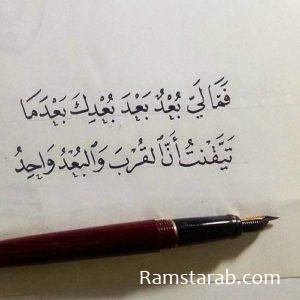 فَمَا لِيَ بُعْدٌ بَعْدَ بُعْدِكَ بَعْدَمَا
تَيَقَّنْتُ أَنَّ القُرْبَ وَالبُعْدُ وَاحِدُ
Ramstarab.com